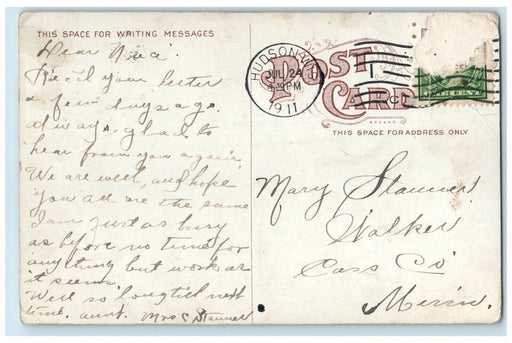 THIS SPACE FOR WRITING MESSAGES
Dear
Rec'd your letter
a few days ago.
always glad to
hear from you again.
We are well, and hope
you all are the same
I am just as busy
as before no time for
anything but work as
it seems.
Well so long till next
time. aunt. Mrs C Stanner
POST
CARD
HUDSON, WIS.
JUL 24
PM
1911
THIS SPACE FOR ADDRESS ONLY
Mary Stanner
Walker
Cass Co
Minn.